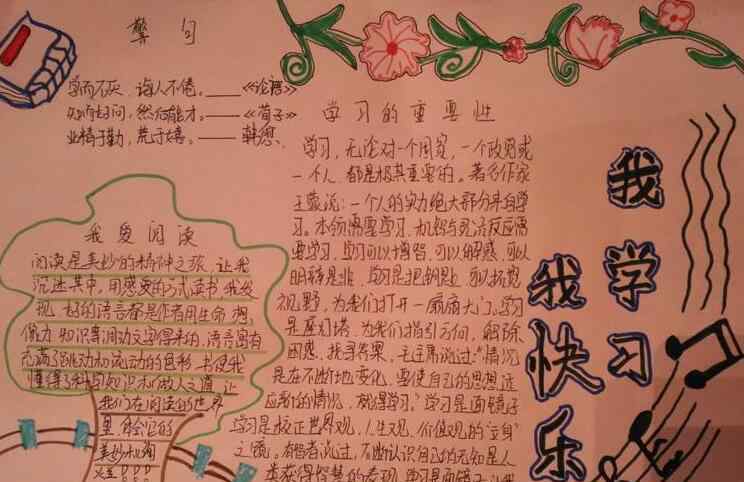 警句
学而不厌、诲人不倦。——《论语》
知而好问，然后能才。——《荀子》
业精于勤，荒于嬉。——韩愈
学习的重要性
学习，无论对一个国家，一个政党或
一个人，都是极其重要的。著名作家
王蒙说：一个人的实力绝大部分来自学
习。本领需要学习，机智与灵活反应需
要学习，学习可以增智，可以解惑，可以
明辨是非。学习是把钥匙，可以拓宽
视野，为我们打开一扇扇大门，学习
是座灯塔，为我们指引方向，解除
困惑，找寻答案，毛主席说过："情况
是在不断地变化，要使自己的思想适
应新的情况，就得学习。"学习是面镜子
学习是校正世界观、人生观、价值观的"立身"
之镜。有智者说过，不断认识自己的无知是人
类获得智慧的表现，学习是面镜子，让我
我爱阅读
阅读是美妙的精神之旅，让我
沉迷其中，用感受的方式读书，我发
现，好的语言都是作者用生命、想
像力、知识等调动文字得来的，语言富有
充满了跳动和流动的色彩，书使我
懂得了科学知识和做人之道，让
我们在阅读的世界
里体会它的
美妙和阅
我学习
我快乐